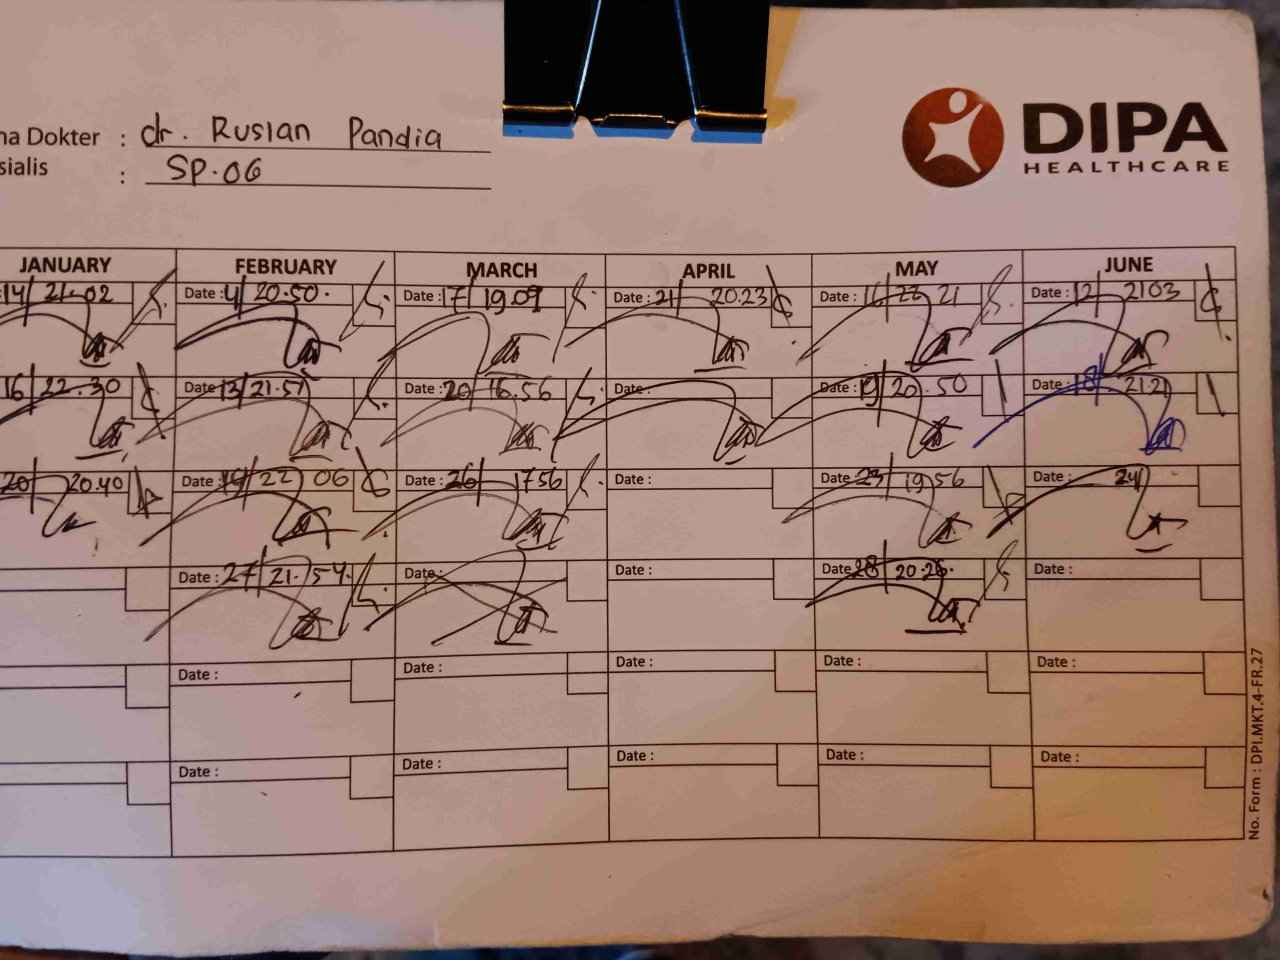 DIPA
HEALTHCARE
ma Dokter : dr. Ruslan Pandia
sialis : SP.OG
JANUARY FEBRUARY MARCH APRIL MAY JUNE
14/ 21.02 Date : 4/ 20.50. Date : 17/ 19.09 Date : 21/ 20.23 Date : 16/ 22 21 Date : 12/ 2103
16/ 22.30 Date : 13/ 21.51 Date : 20/ 16.56 Date : Date : 19/ 20.50 Date : 18/ 2121
20/ 20.40 Date : 19/ 22 06 Date : 26/ 1756 Date : Date : 23/ 1956 24/
Date : 27/ 21.54. Date : Date : Date : 28/ 20.26. Date :
Date : Date : Date : Date : Date :
Date : Date : Date : Date : Date :
No. Form : DPI.MKT.4-FR.27